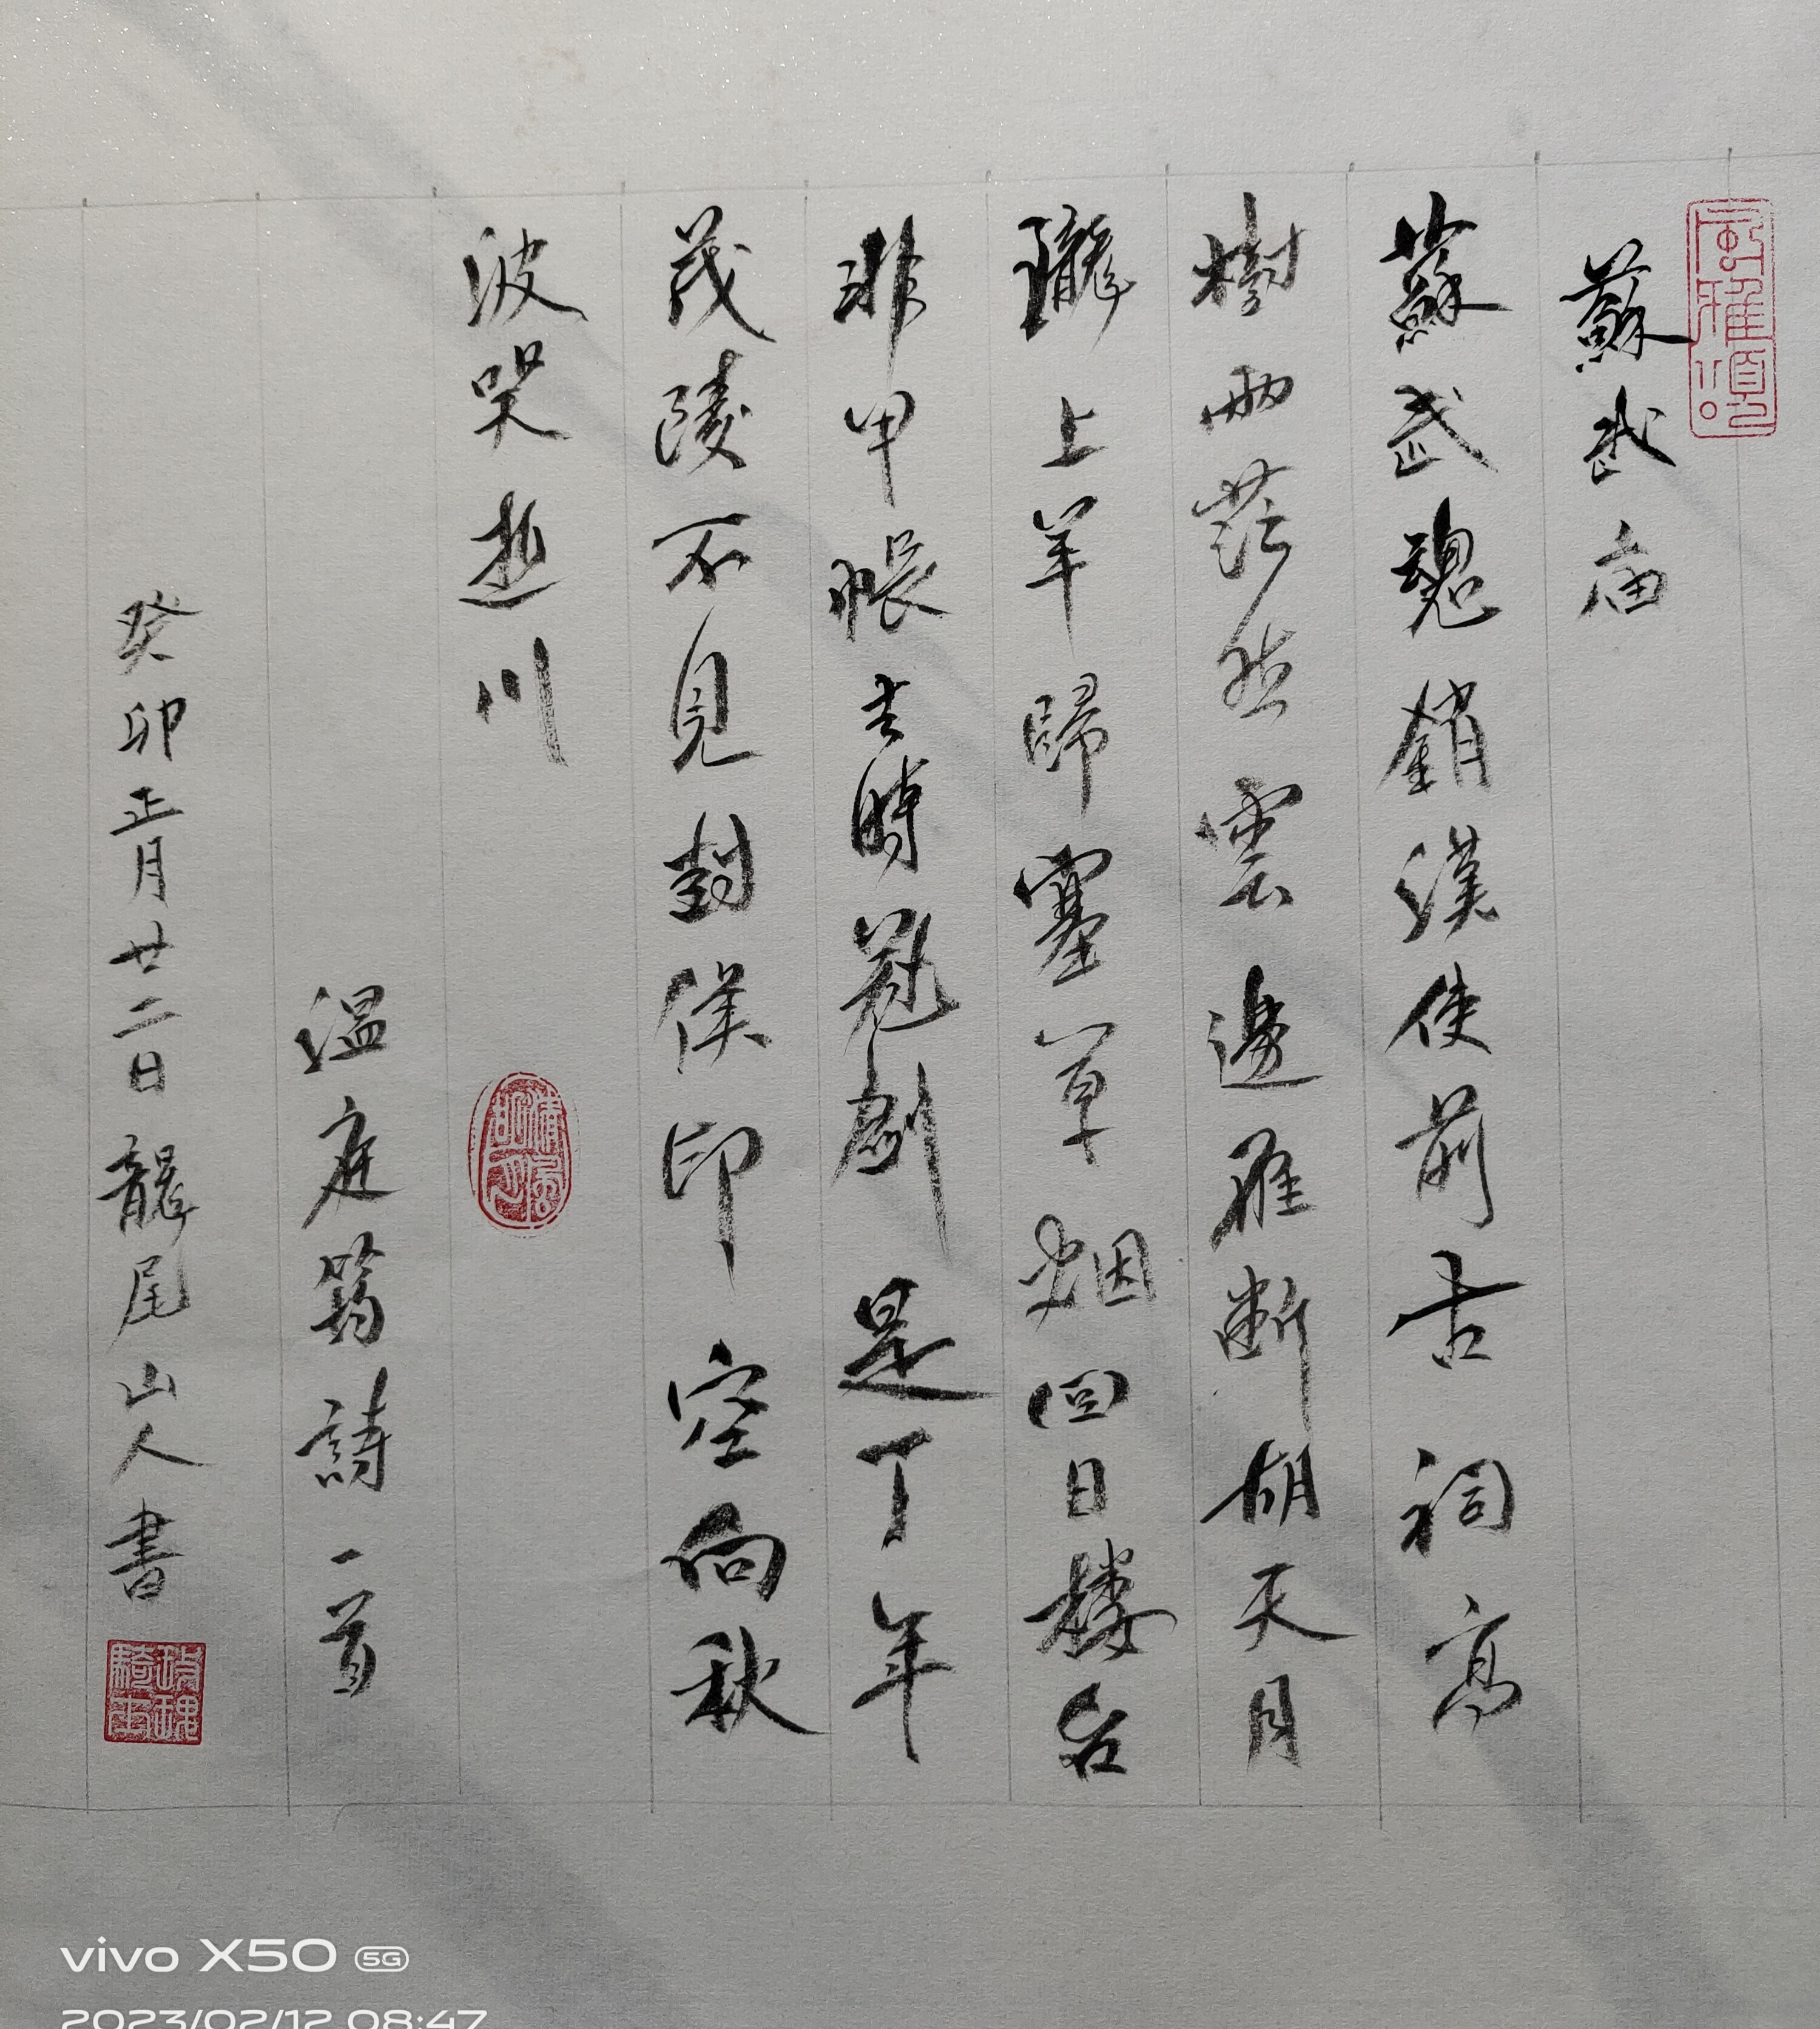 蘇武庙
蘇武魂銷漢使前古祠高
樹兩茫然雲邊雁断胡天月
隴上羊歸塞草烟回日楼台
非甲帳去時冠劍是丁年
茂陵不見封侯印空向秋
波哭逝川
温庭筠詩一首
癸卯正月廿二日龍尾山人書
vivo X50 5G
2023/02/12 08:47